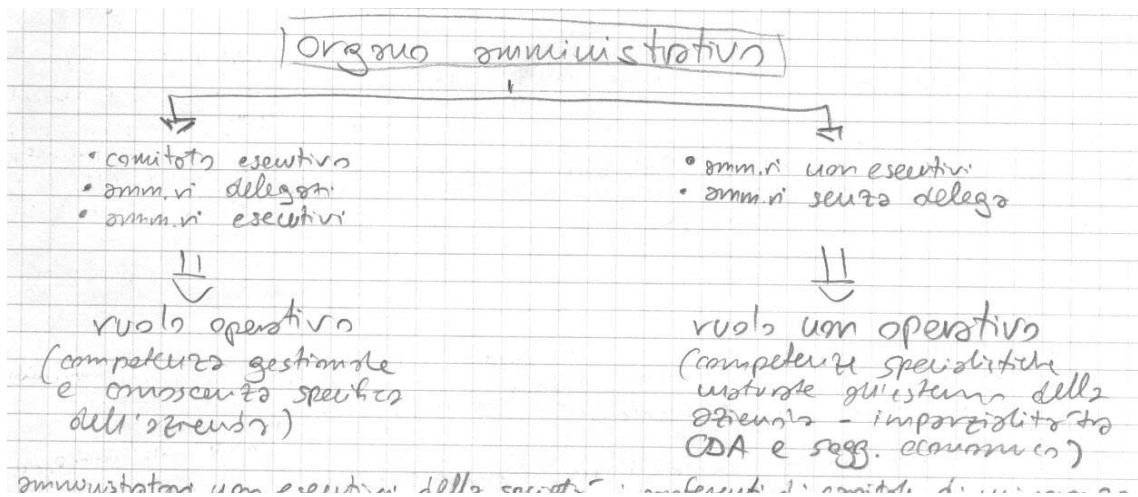 organo amministrativo
• comitato esecutivo
• amm.ri delegati
• amm.ri esecutivi
ruolo operativo
(competenza gestionale
e conoscenza specifica
dell'azienda)
• amm.ri non esecutivi
• amm.ri senza delega
ruolo non operativo
(competenze specialistiche
maturate all'esterno della
azienda - imparzialità tra
CDA e sogg. economico)
amministratori non esecutivi della società: di capitale di